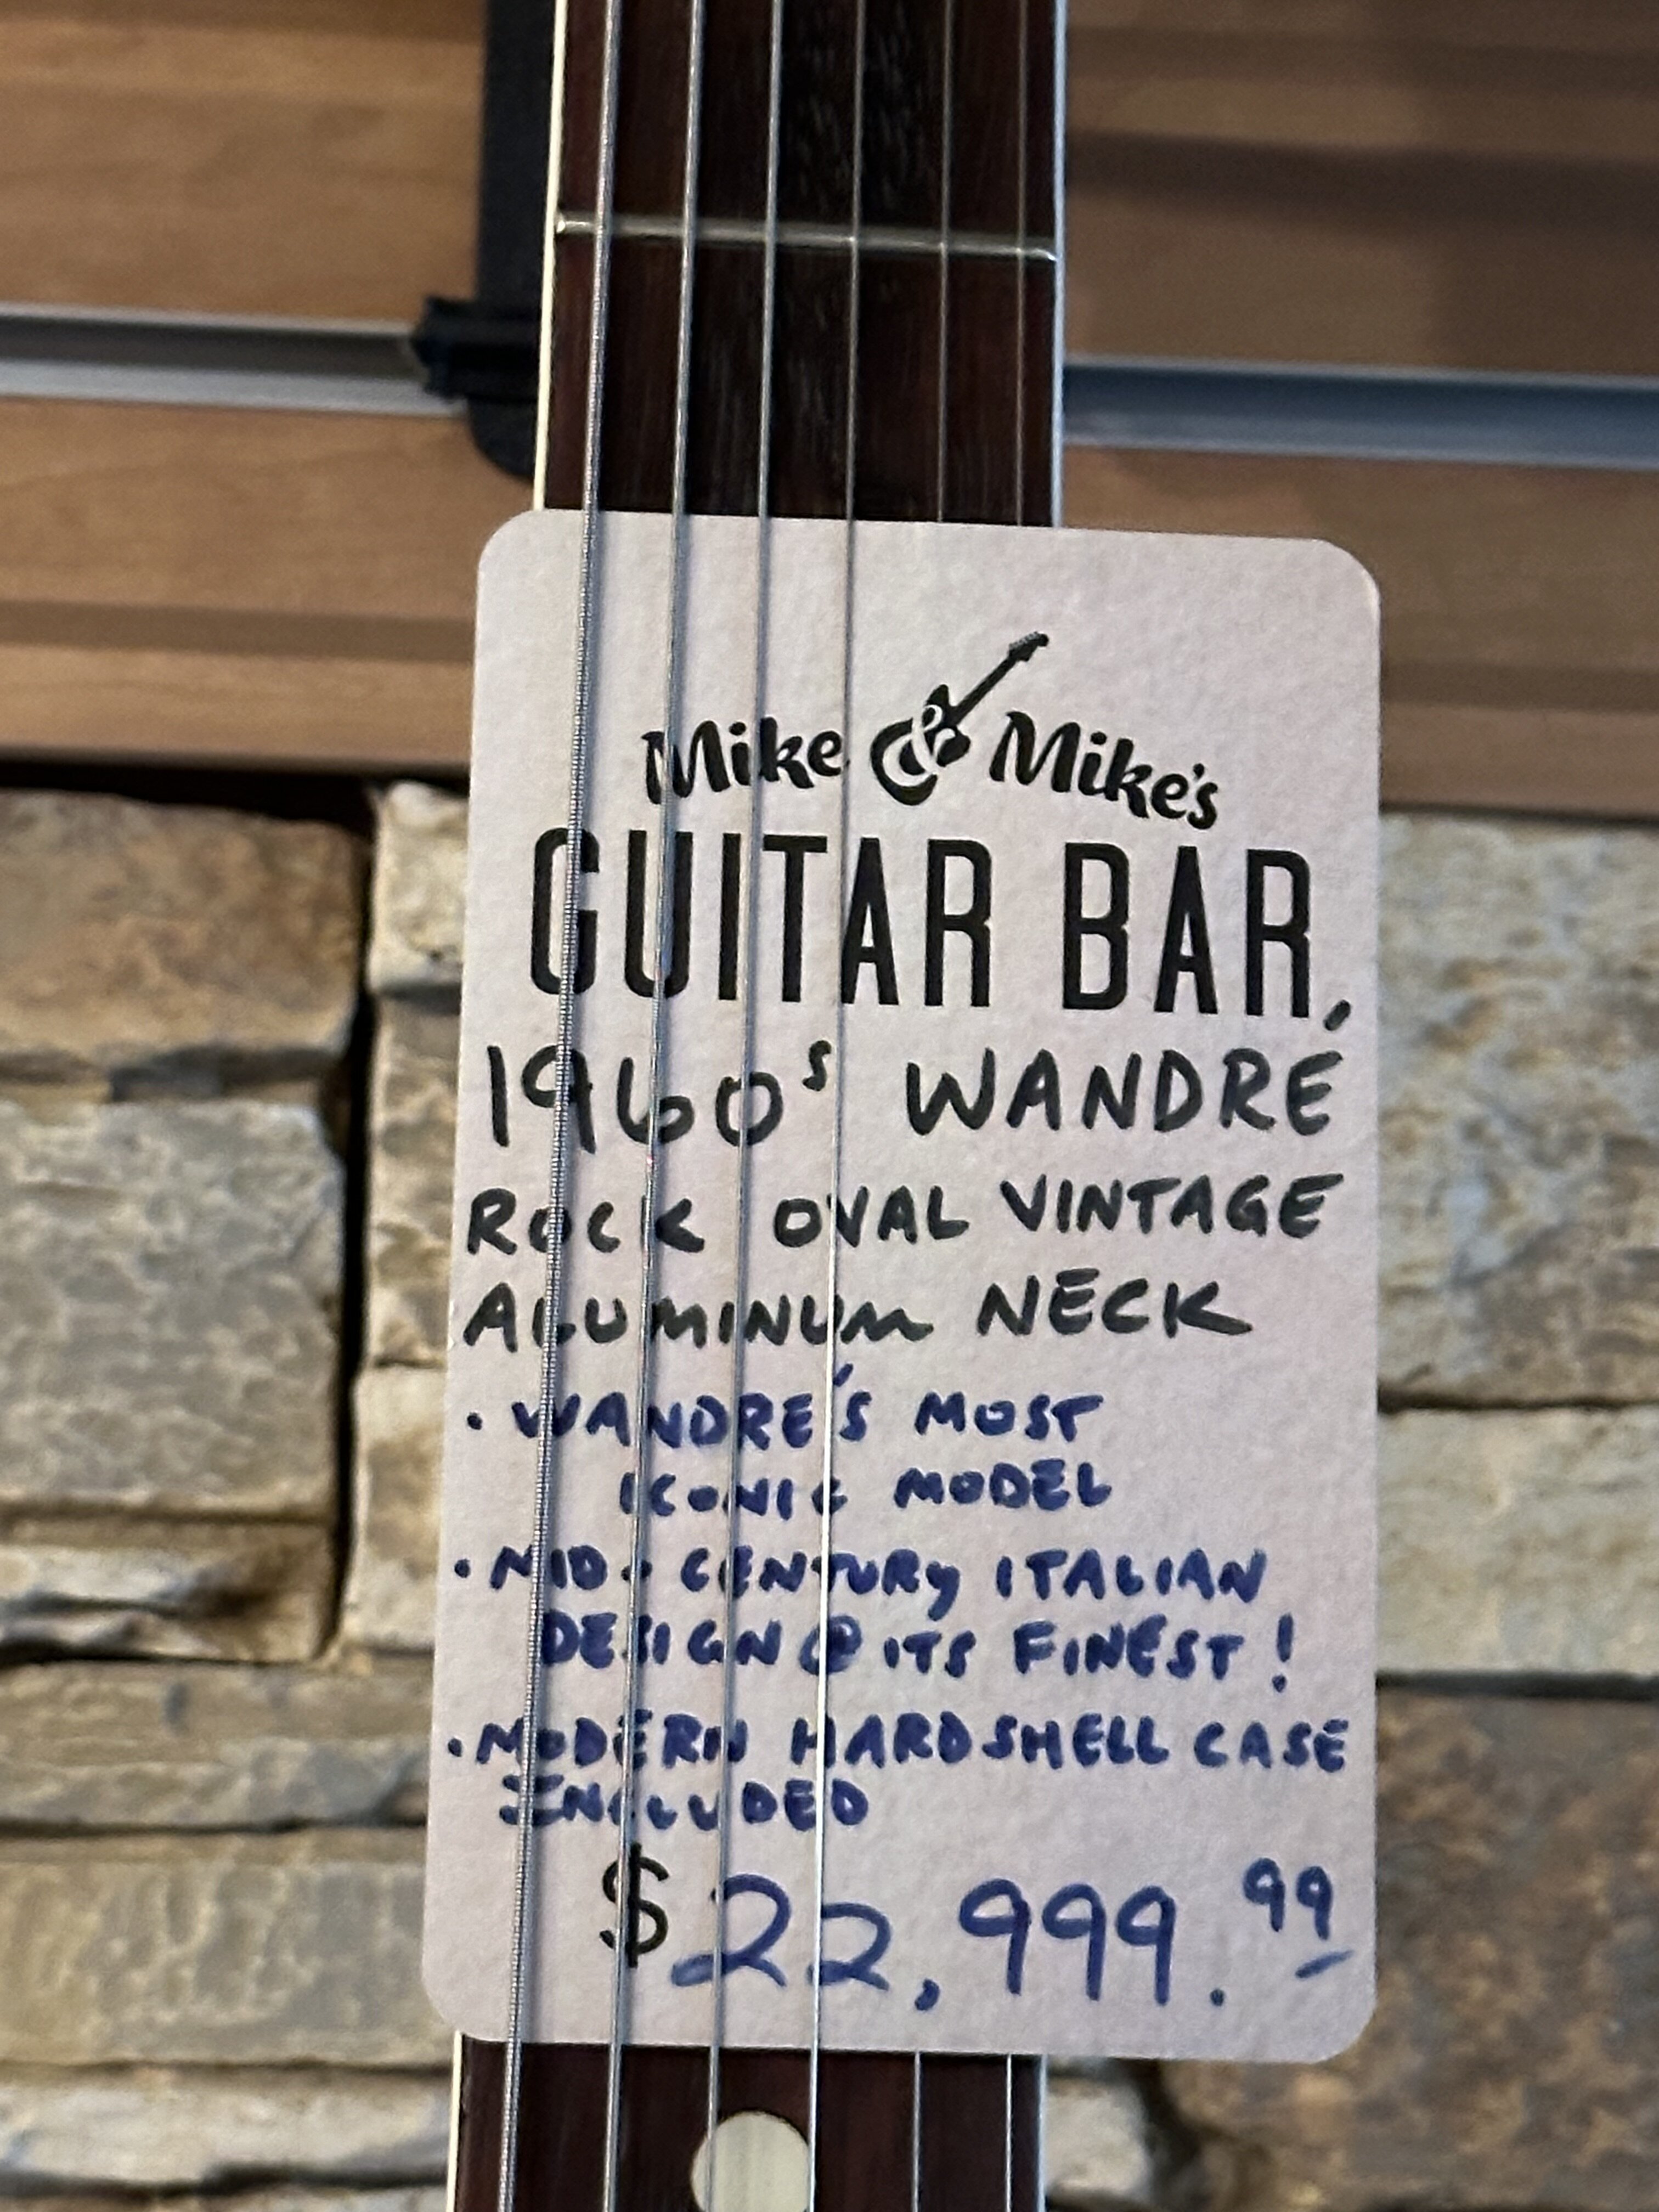 Mike & Mike's
GUITAR BAR
1960s WANDRÉ
ROCK OVAL VINTAGE
ALUMINUM NECK
• WANDRÉ'S MOST
ICONIC MODEL
• MID-CENTURY ITALIAN
DESIGN @ ITS FINEST!
• MODERN HARDSHELL CASE
INCLUDED
$22,999.99